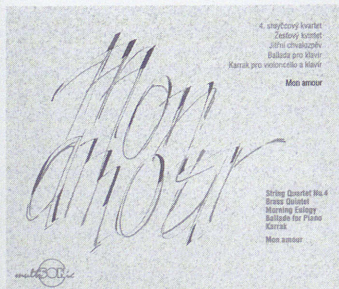 4. smyčcový kvartet
Žesťový kvintet
Jitřní chvalozpěv
Ballada pro klavír
Karrak pro violoncello a klavír
Mon amour
Mon
amour
String Quartet No.4
Brass Quintet
Morning Eulogy
Ballade for Piano
Karrak
Mon amour
multisonic